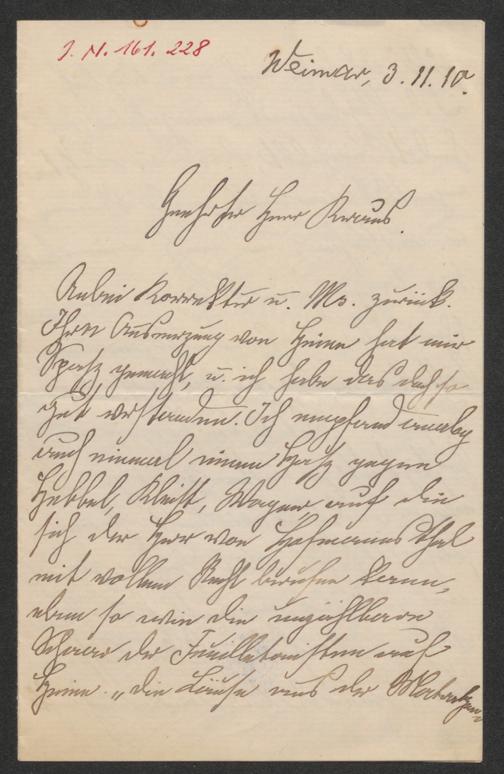 J. N. 161. 228
Weimar, 3. 11. 10.
Geehrter Herr Kraus.
Anbei Korrektur u. Ms. zurück.
Ihre von Heine hat mir
Spaß gemacht, u. ich habe das doch so
gut verstanden. Ich empfand
auch einmal einen Haß gegen
Hebbel, Kleist, Wagner auf die
sich der Herr von Hofmannsthal
mit vollem Recht berufen kann,
eben so wie die unzählbare
Schaar der Feuilletonisten auf
Heine. „die Läuse aus der